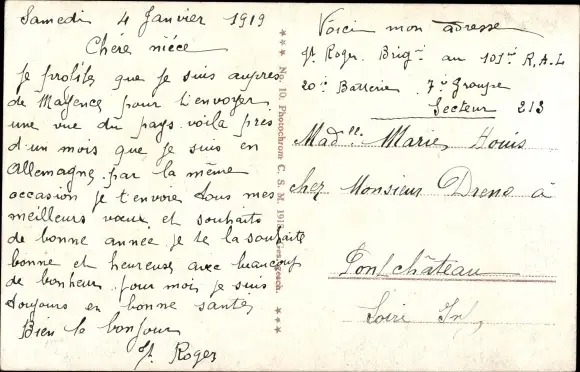 Samedi 4 Janvier 1919
Chère nièce
je profites que je suis aupres
de Mayence pour t'envoyer
une vue du pays voila pres
d'un mois que je suis en
Allemagne, par la même
occasion je t'envoie tous mes
meilleurs vœux et souhaits
de bonne année je te la souhaite
bonne et heureuse avec beaucoup
de bonheur pour moi je suis
toujours en bonne santé
Bien le bonjour
Roger
*** No. 10. Photochrom C. S. M. ***
Voici mon adresse
Roger Brig au 107 R.A.L
20 Batterie 7 Groupe
Secteur 213
Mad lle Marie Houis
chez Monsieur Dreno à
Pontchâteau
Loire Inf